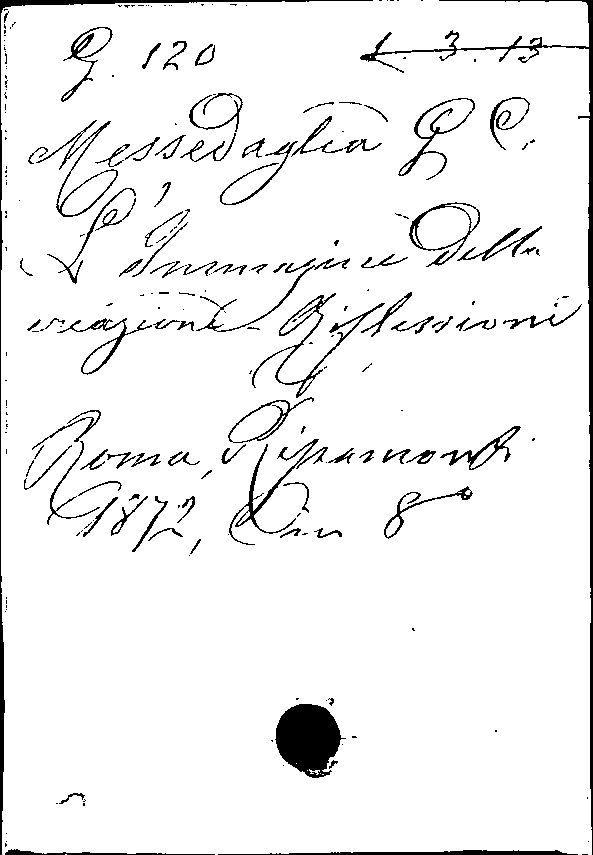 G. 120 1. 3. 13
Messedaglia G C.
L'Immagine della
creazione - Riflessioni
Roma, Ripamonti
1872, in 8°